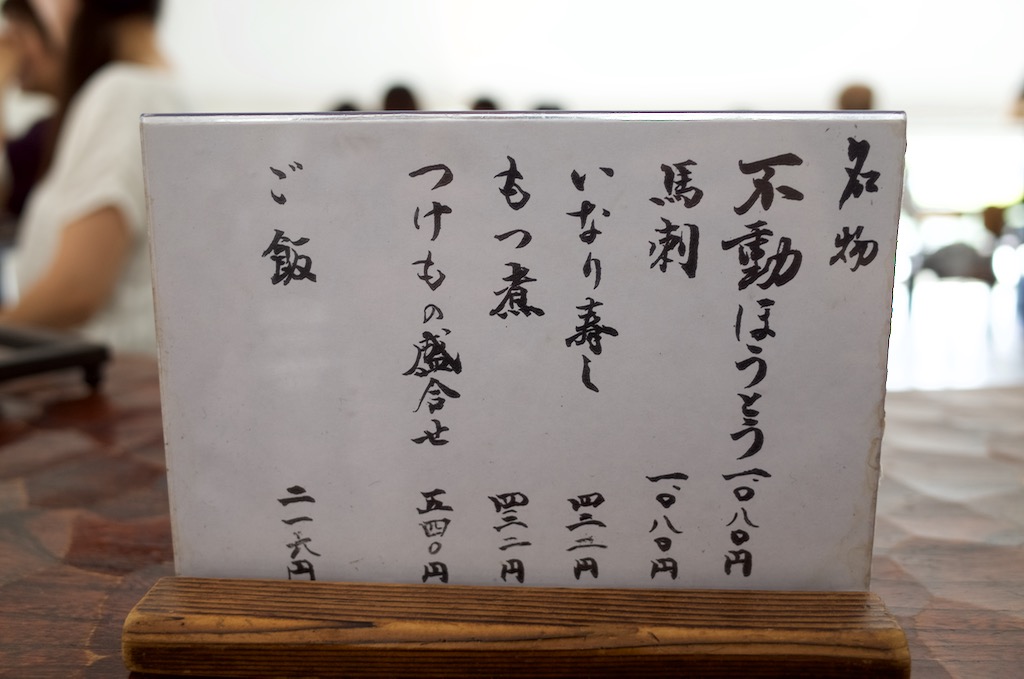 名物
不動ほうとう 一、〇八〇円
馬刺 一、〇八〇円
いなり寿し 四三二円
もつ煮 四三二円
つけもの盛合せ 五四〇円
ご飯 二一六円